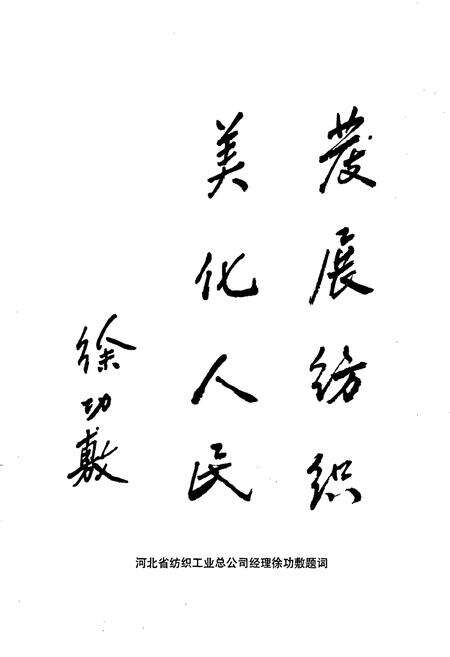 发展纺织
美化人民
徐功敷
河北省纺织工业总公司经理徐功敷题词